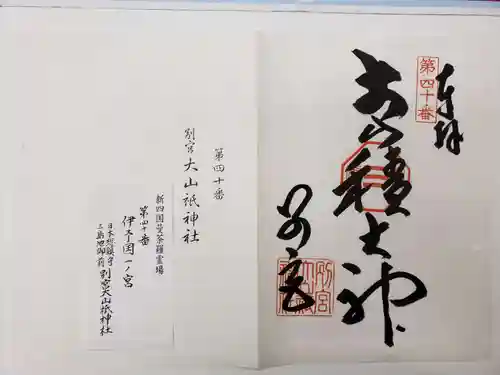 奉拝
第四十番
大山積大神
別宮
第四十番
別宮 大山祇神社
新四国曼荼羅霊場
第四十番
伊予国一ノ宮
日本総鎮守
三島地御前 別宮大山祇神社